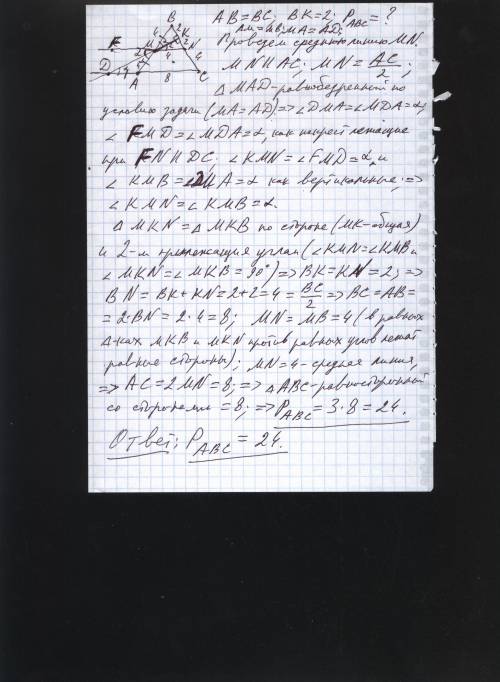 AB=BC; BK=2; P_ABC=?
AM=MB; MA=AD;
Проведем среднюю линию MN.
MN || AC; MN = AC/2;
△ MAD - равнобедренный по
условию задачи (MA=AD) => ∠DMA=∠MDA=α;
∠ FMD=∠MDA=α, как накрест лежащие
при FN || DC. ∠KMN=∠FMD=α и
∠ KMB=∠DMA=α как вертикальные; =>
∠ KMN=∠KMB=α.
△ MKN = △ MKB по стороне (MK-общая)
и 2-м прилежащим углам (∠KMN=∠KMB и
∠ MKN=∠MKB=90°) => BK=KN=2; =>
BN=BK+KN=2+2=4 = BC/2 => BC=AB=
=2·BN=2·4=8; MN=MB=4 (в равных
△-ках MKB и MKN против равных углов лежат
равные стороны); MN=4-средняя линия,
=> AC=2MN=8; => △ABC-равносторонний
со сторонами =8; => P_ABC=3·8=24.
Ответ: P_ABC=24.
B
F
M
K
N
D
A
8
C